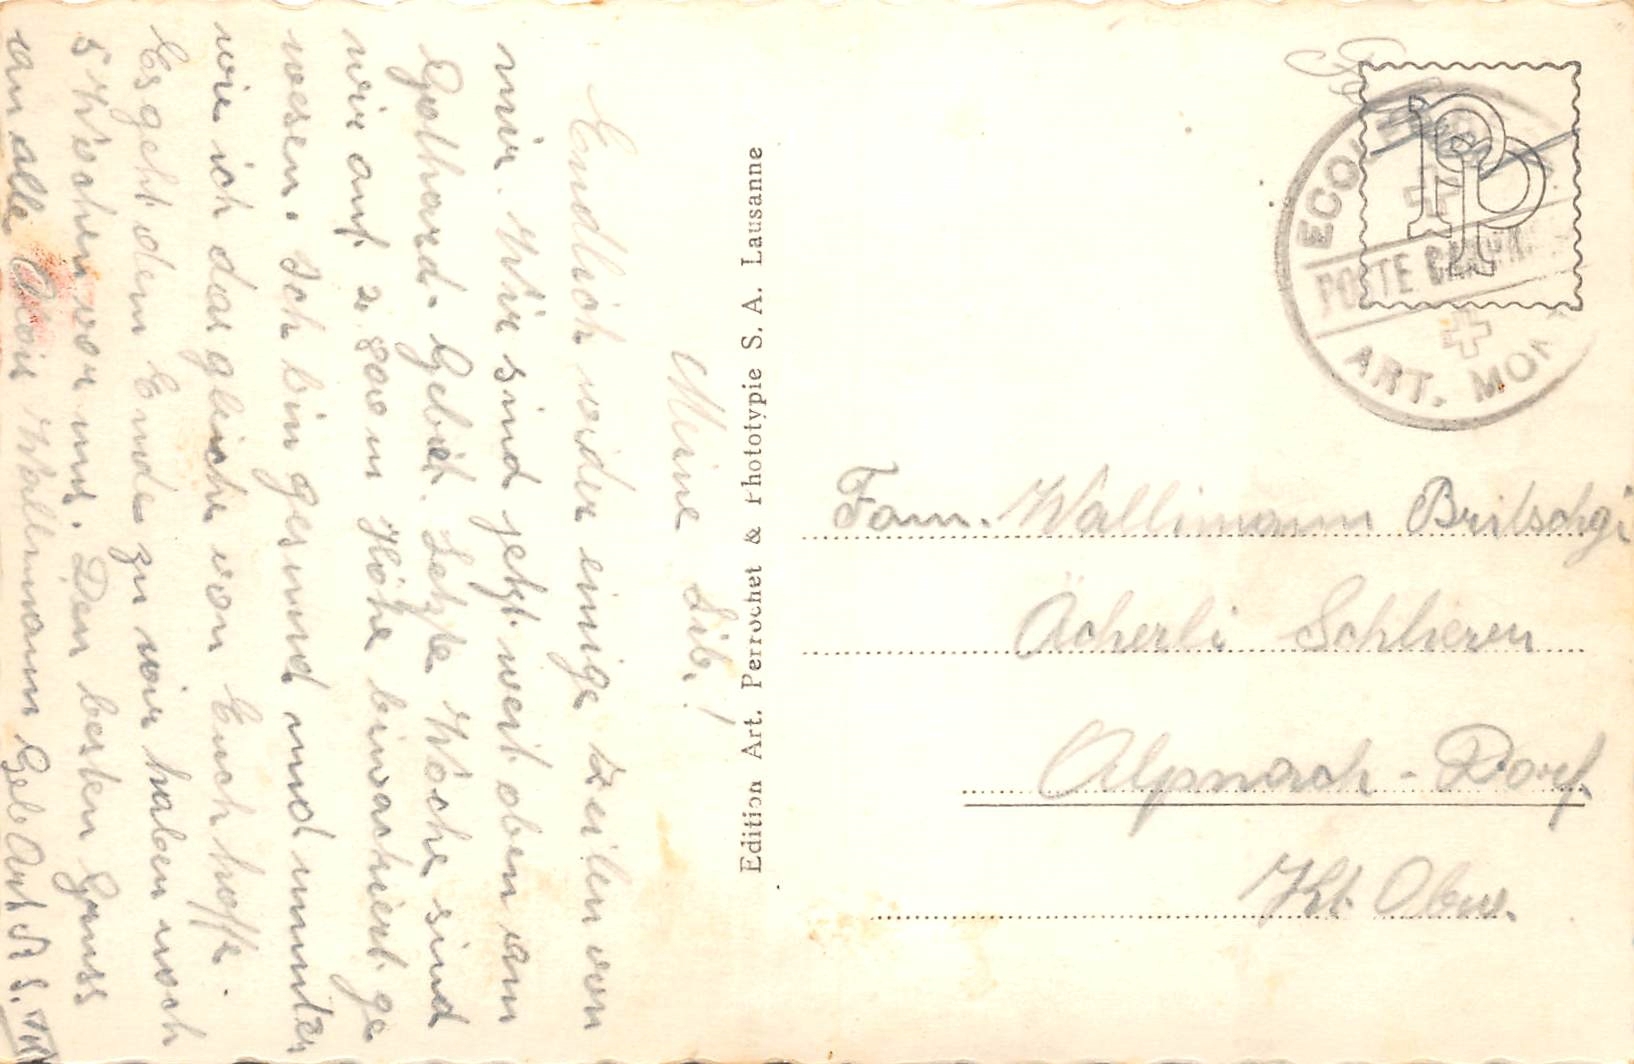 Meine Lieb.!
Endlich wider einige Zeilen von
mir. Wir sind jetzt weit oben am
Gothard-Gebiet. Letzte Woche sind
wir auf 2800 m Höhe biwackiert ge
wesen. Ich bin gesund und munter
wie ich das gleiche von Euch hoffe.
Es geht dem Ende zu wir haben noch
5 Wochen vor uns. Den besten Gruss
an alle Alois Wallimann Geb Art R S.
Edition Art. Perrochet & Phototypie S. A. Lausanne
POSTE
ART. MON
Fam. Wallimann Britschgi
Acherli Schlieren
Alpnach-Dorf.
Kt. Obw.